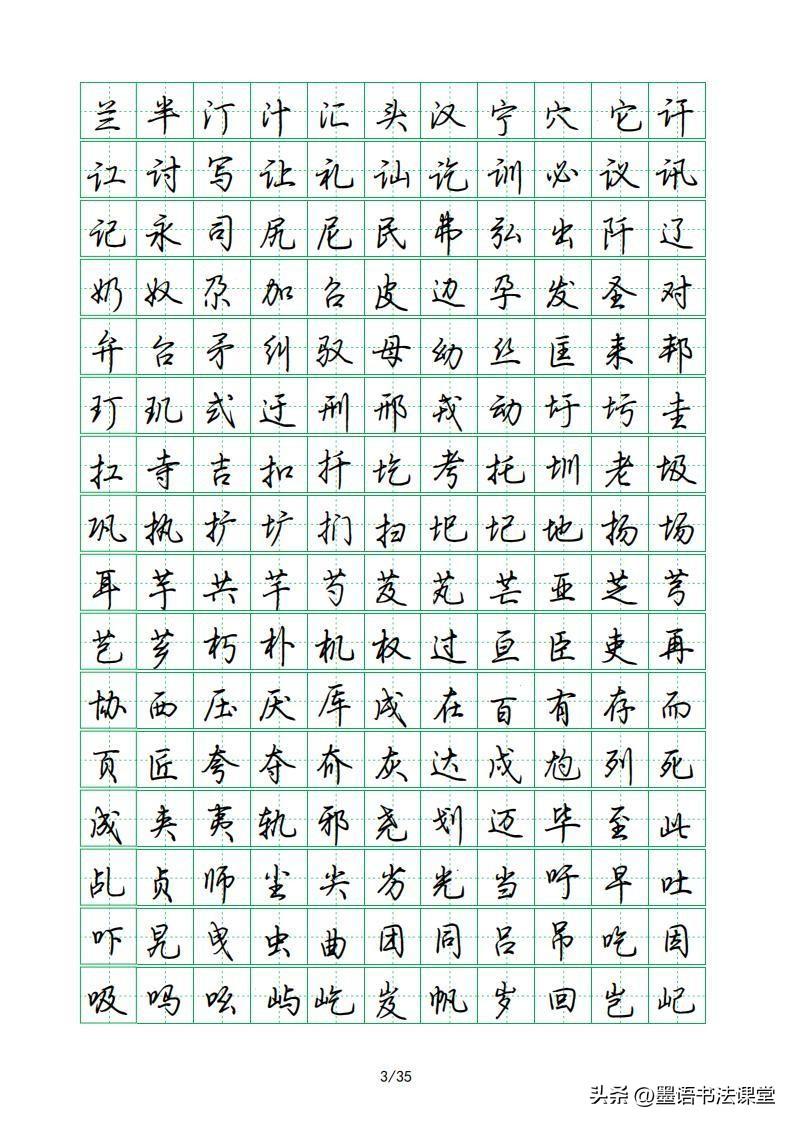 兰半汀汁汇头汉宁穴它讦
讧讨写让礼讪讫训必议讯
记永司尻尼民弗弘出阡辽
奶奴尕加召皮边孕发圣对
弁台矛纠驭母幼丝匡耒邦
玎玑式迂刑邢戎动圩圬圭
扛寺吉扣扦圪考托圳老圾
巩执扩圹扪扫圯圮地扬场
耳芋共芊芍芨芄芒亚芝芎
芑芗朽朴机权过亘臣吏再
协西压厌厍戌在百有存而
页匠夸夺夼灰达戍尥列死
成夹夷轨邪尧划迈毕至此
乩贞师尘尖劣光当吁早吐
吓旯曳虫曲团同吕吊吃因
吸吗吆屿屹岌帆岁回岂屺
3/35
头条 @墨语书法课堂